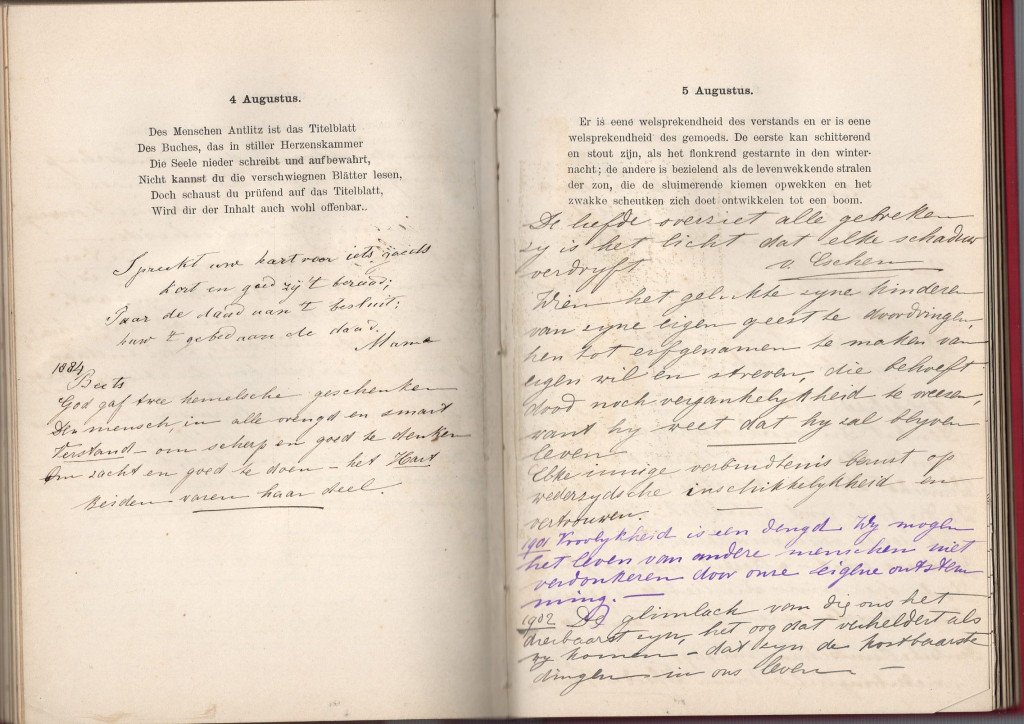 4 Augustus.
Des Menschen Antlitz ist das Titelblatt
Des Buches, das in stiller Herzenskammer
Die Seele nieder schreibt und aufbewahrt,
Nicht kannst du die verschwiegnen Blätter lesen,
Doch schaust du prüfend auf das Titelblatt,
Wird dir der Inhalt auch wohl offenbar..
Spreekt uw hart voor iets goeds
Kort en goed zij 't beraad;
Paar de daad aan 't besluit;
huw 't gebed aan de daad.
Mama
1884
Beets
God gaf twee hemelsche geschenken
Den mensch in alle vreugd en smart
Verstand – om scherp en goed te denken
Om zacht en goed te doen – het Hart
Beiden waren haar deel.
5 Augustus.
Er is eene welsprekendheid des verstands en er is eene
welsprekendheid des gemoeds. De eerste kan schitterend
en stout zijn, als het flonkrend gestarnte in den winter-
nacht; de andere is bezielend als de levenwekkende stralen
der zon, die de sluimerende kiemen opwekken en het
zwakke scheutken zich doet ontwikkelen tot een boom.
De liefde overziet alle gebreken
zy is het licht dat elke schaduw
verdryft v. Eschen
Wien het gelukte zyne kinderen
van zyne eigen geest te doordringen,
hen tot erfgenamen te maken van
eigen wil en streven, die behoeft
dood noch vergankelykheid te vreesen,
want hy weet dat hy zal blyven
leven
Elke innige verbindtenis berust op
wederzydsche inschikkelykheid en
vertrouwen.
1901 Vroolykheid is een deugd. Wy mogen
het leven van andere menschen niet
verdonkeren door onze eigene ontstem
ming. –
1902 De glimlach van die ons het
dierbaarst zyn, het oog dat verheldert als
wy komen – dat zyn de kostbaarste
dingen in ons leven –